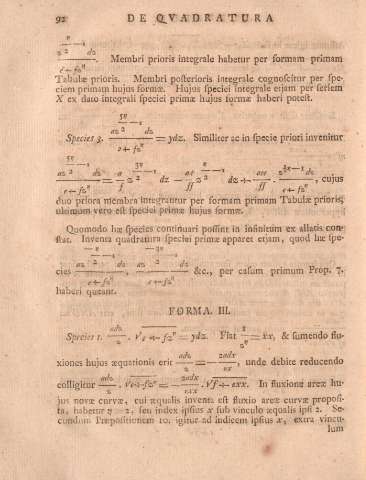 92 DE QVADRATURA
z^{η/2 - 1} dz / (e + fz^η) . Membri prioris integrale habetur per formam primam
Tabulæ prioris. Membri posterioris integrale cognoscitur per spe-
ciem primam hujus formæ. Hujus speciei integrale etjam per seriem
X ex dato integrali speciei primæ hujus formæ haberi potest.
Species 3. az^{5η/2 - 1} dz / (e + fz^η) = ydz. Similiter ac in specie priori invenitur
az^{5η/2 - 1} dz / (e + fz^η) = a/f z^{3η/2 - 1} dz - ae/ff z^{η/2 - 1} dz + aee/ff . z^{η/2 - 1} dz / (e + fz^η) , cujus
duo priora membra integrantur per formam primam Tabulæ prioris,
ultimum vero est speciei primæ hujus formæ.
Quomodo hæ species continuari possint in infinitum ex allatis con-
stat. Inventa quadratura speciei primæ apparet etjam, quod hæ spe-
cies az^{-η/2 - 1} dz / (e + fz^η) , az^{-3η/2 - 1} dz / (e + fz^η) &c., per casum primum Prop. 7.
haberi queant.
FORMA. III.
Species 1. adz/z . √(e + fz^η) = ydz. Fiat 1/z^η = xx, & sumendo flu-
xiones hujus æquationis erit adz/z = - 2adx/ηx , unde debite reducendo
colligitur adz/z . √(e + fz^η) = - 2adx/ηxx . √(f + exx). In fluxione areæ hu-
jus novæ curvæ, cui æqualis inventa est fluxio areæ curvæ proposi-
ta, habetur η = 2, seu index ipsius x sub vinculo æqualis ipsi 2. Se-
cundum Præpositionem 10. igitur ad indicem ipsius x, extra vincu-
lum